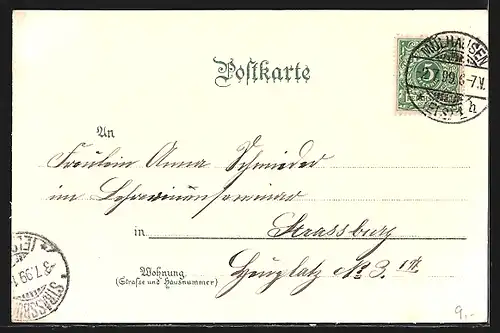 Postkarte
MÜLHAUSEN
(ELS.) 1
An
Fräulein Anna Schmieder
im Lehrerinnenseminar
in Strassburg
Wohnung
(Straße und Hausnummer)
No 3.
3.7.99
STRASSBURG
9.-